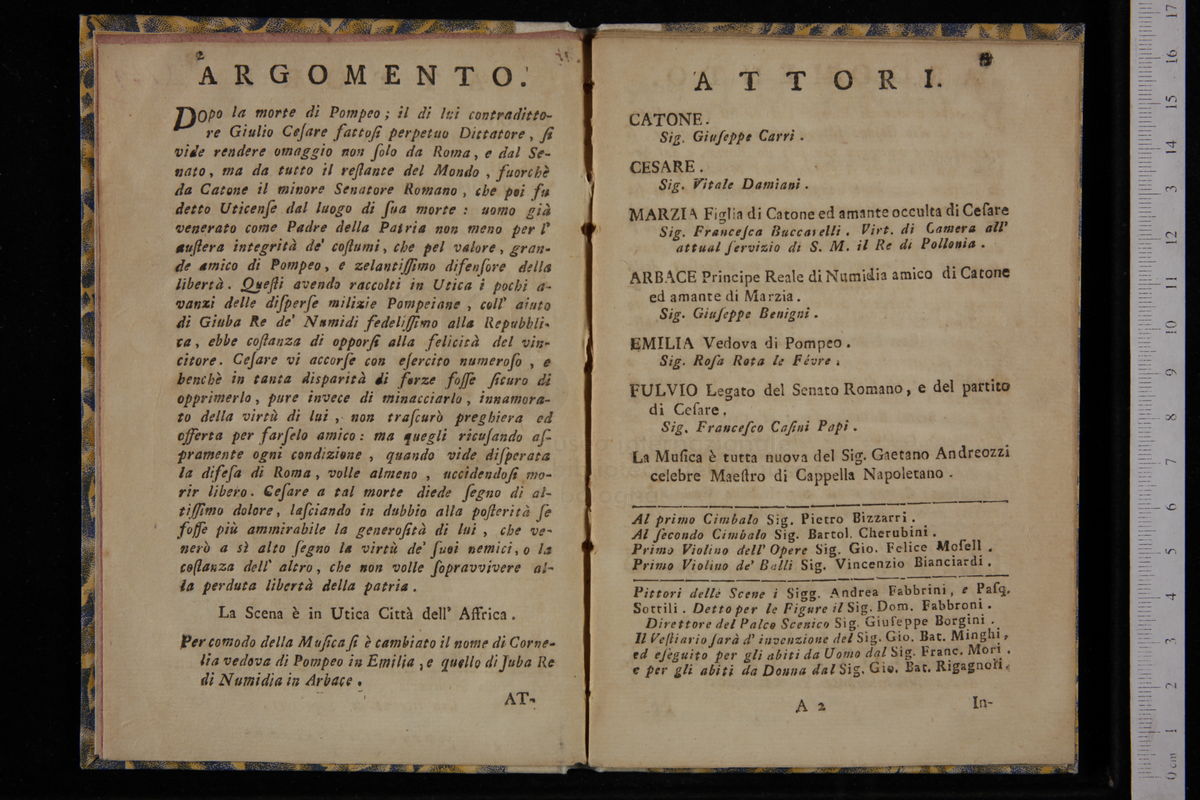 2
ARGOMENTO.
Dopo la morte di Pompeo; il di lui contraditto-
re Giulio Ceſare fattoſi perpetuo Dittatore, ſi
vide rendere omaggio non ſolo da Roma, e dal Se-
nato, ma da tutto il reſtante del Mondo, fuorchè
da Catone il minore Senatore Romano, che poi fu
detto Uticenſe dal luogo di ſua morte: uomo già
venerato come Padre della Patria non meno per l'
auſtera integrità de' coſtumi, che pel valore, gran-
de amico di Pompeo, e zelantiſſimo difenſore della
libertà. Queſti avendo raccolti in Utica i pochi a-
vanzi delle diſperſe milizie Pompeiane, coll' aiuto
di Giuba Re de' Numidi fedeliſſimo alla Repubbli-
ca, ebbe coſtanza di opporſi alla felicità del vin-
citore. Ceſare vi accorſe con eſercito numeroſo, e
benchè in tanta disparità di forze foſſe ſicuro di
opprimerlo, pure invece di minacciarlo, innamora-
to della virtù di lui, non traſcurò preghiera ed
offerta per farſelo amico: ma quegli ricuſando aſ-
pramente ogni condizione, quando vide diſperata
la difeſa di Roma, volle almeno, uccidendoſi mo-
rir libero. Ceſare a tal morte diede ſegno di al-
tiſſimo dolore, laſciando in dubbio alla poſterità ſe
foſſe più ammirabile la generoſità di lui, che ve-
nerò a sì alto ſegno la virtù de' ſuoi nemici, o la
coſtanza dell' altro, che non volle ſopravvivere al-
la perduta libertà della patria.
La Scena è in Utica Città dell' Affrica.
Per comodo della Muſica ſi è cambiato il nome di Corne-
lia vedova di Pompeo in Emilia, e quello di Juba Re
di Numidia in Arbace.
AT-
ATTORI.
CATONE.
Sig. Giuſeppe Carri.
CESARE.
Sig. Vitale Damiani.
MARZIA Figlia di Catone ed amante occulta di Ceſare
Sig. Franceſca Buccarelli. Virt. di Camera all'
attual ſervizio di S. M. il Re di Pollonia.
ARBACE Principe Reale di Numidia amico di Catone
ed amante di Marzia.
Sig. Giuſeppe Benigni.
EMILIA Vedova di Pompeo.
Sig. Roſa Rota le Févre.
FULVIO Legato del Senato Romano, e del partito
di Ceſare.
Sig. Franceſco Caſini Papi.
La Muſica è tutta nuova del Sig. Gaetano Andreozzi
celebre Maeſtro di Cappella Napoletano.
Al primo Cimbalo Sig. Pietro Bizzarri.
Al ſecondo Cimbalo Sig. Bartol. Cherubini.
Primo Violino dell' Opere Sig. Gio. Felice Moſell.
Primo Violino de' Balli Sig. Vincenzio Bianciardi.
Pittori delle Scene i Sigg. Andrea Fabbrini, e Paſq.
Sottili. Detto per le Figure il Sig. Dom. Fabbroni.
Direttore del Palco Scenico Sig. Giuſeppe Borgini.
Il Veſtiario ſarà d' invenzione del Sig. Gio. Bat. Minghi,
ed eſeguito per gli abiti da Uomo dal Sig. Franc. Mori.
e per gli abiti da Donna dal Sig. Gio. Bat. Rigagnoli.
A 2
In-
0 cm 1 2 3 4 5 6 7 8 9 10 11 12 13 14 15 16 17